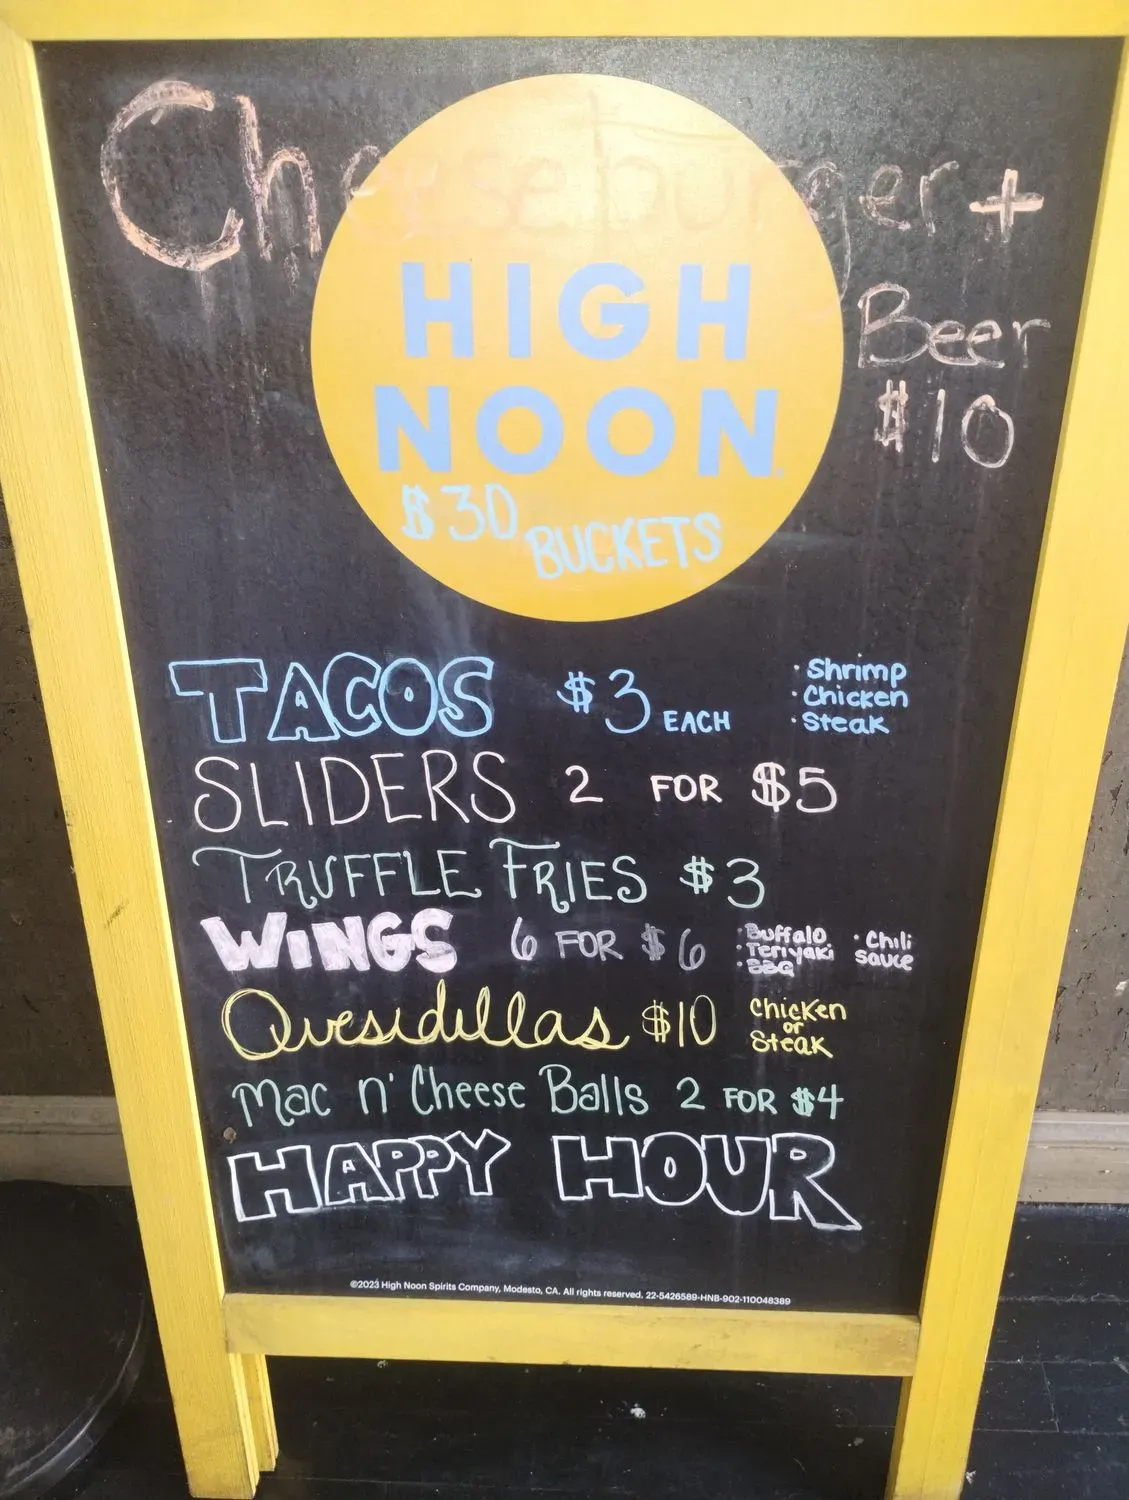 Cheeseburger +
Beer
$10
HIGH
NOON
$30 BUCKETS
TACOS $3 EACH
· Shrimp
· Chicken
· Steak
SLIDERS 2 FOR $5
TRUFFLE FRIES $3
WINGS 6 FOR $6
· Buffalo
· Teriyaki
· BBQ
· Chili
sauce
Quesidillas $10
Chicken
or
Steak
Mac n' Cheese Balls 2 FOR $4
HAPPY HOUR
©2023 High Noon Spirits Company, Modesto, CA. All rights reserved. 22-5426589-HNB-902-110048389